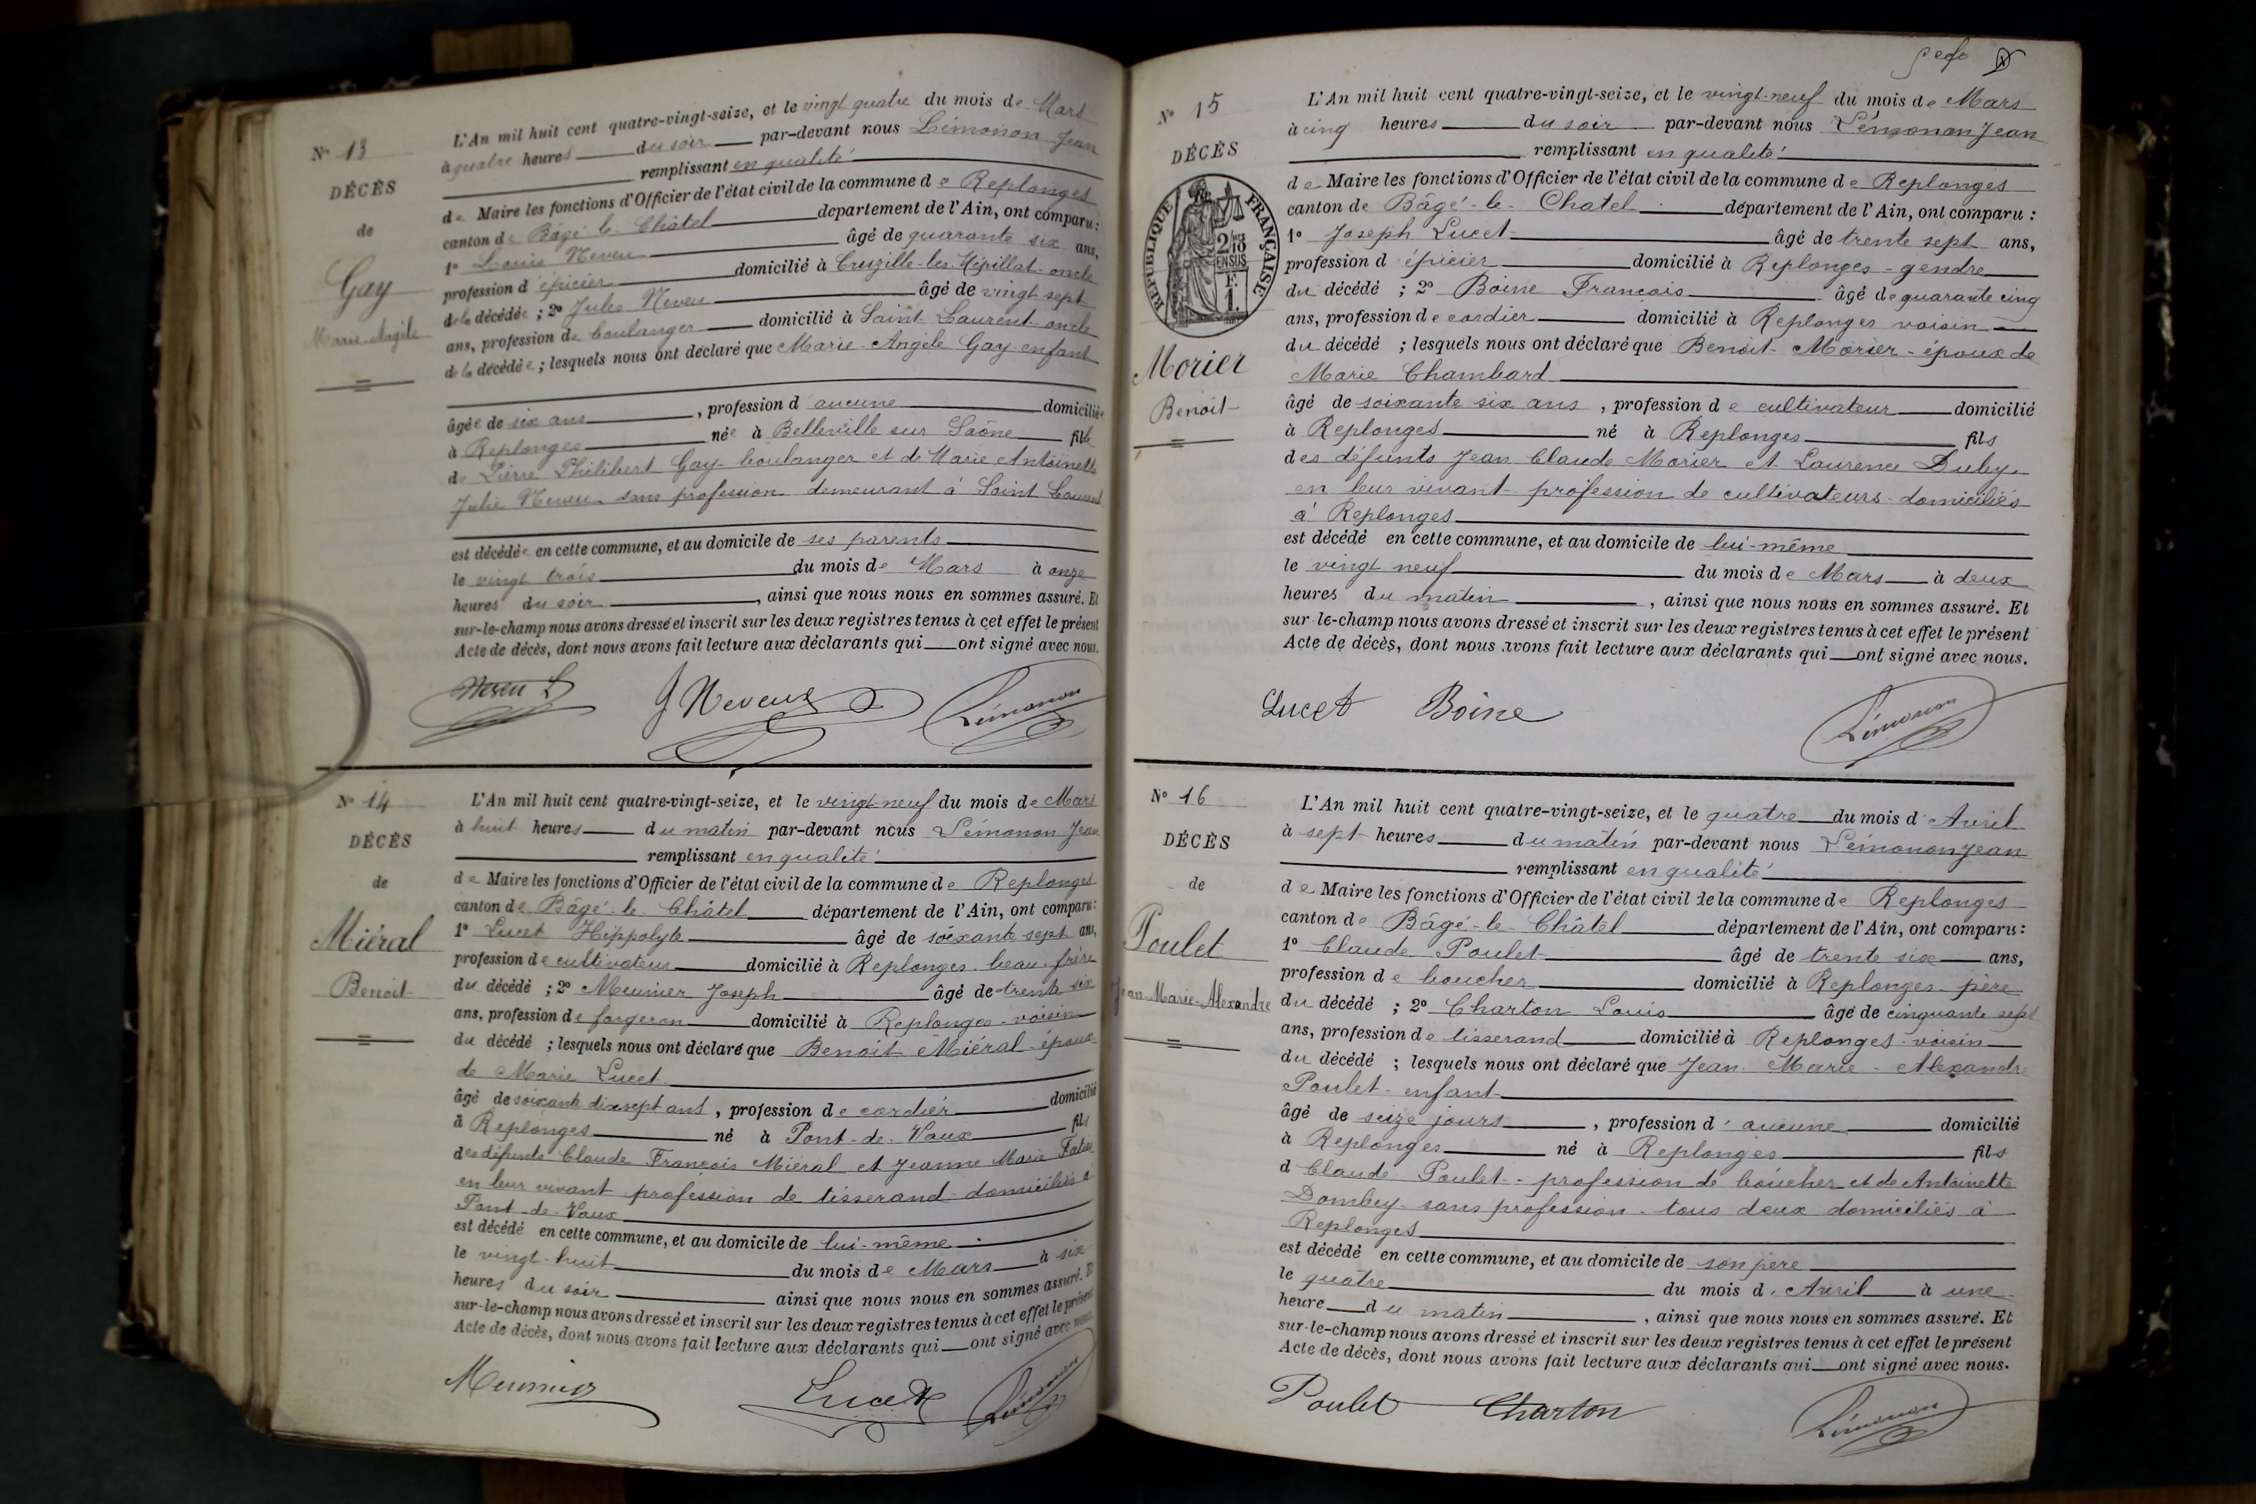 N° 13
DÉCÈS
de
Gay
Marie-Angèle
L'An mil huit cent quatre-vingt-seize, et le vingt quatre du mois de Mars
à quatre heures du soir par-devant nous Lémonon Jean
remplissant en qualité
de Maire les fonctions d'Officier de l'état civil de la commune de Replonges
canton de Bâgé-le-Châtel département de l'Ain, ont comparu :
1° Louis Neveu âgé de quarante six ans,
profession d'épicier domicilié à Cruzille-les-Mépillat-oncle
de la décédée ; 2° Jules Neveu âgé de vingt sept
ans, profession de boulanger domicilié à Saint-Laurent-oncle
de la décédée ; lesquels nous ont déclaré que Marie-Angèle Gay-enfant
âgée de six ans, profession d'aucune domiciliée
à Replonges née à Belleville sur Saône fille
de Pierre Philibert Gay-boulanger et de Marie Antoinette
Julie Neveu sans profession demeurant à Saint Laurent
est décédée en cette commune, et au domicile de ses parents
le vingt trois du mois de Mars à onze
heures du soir, ainsi que nous nous en sommes assuré. Et
sur-le-champ nous avons dressé et inscrit sur les deux registres tenus à cet effet le présent
Acte de décès, dont nous avons fait lecture aux déclarants qui ont signé avec nous.
Neveu L
J Neveu
Lémonon
N° 14
DÉCÈS
de
Miéral
Benoit
L'An mil huit cent quatre-vingt-seize, et le vingt-neuf du mois de Mars
à huit heures du matin par-devant nous Lémonon Jean
remplissant en qualité
de Maire les fonctions d'Officier de l'état civil de la commune de Replonges
canton de Bâgé-le-Châtel département de l'Ain, ont comparu :
1° Lucet Hippolyte âgé de soixante sept ans,
profession de cultivateur domicilié à Replonges-beau-frère
du décédé ; 2° Meunier Joseph âgé de trente six
ans, profession de forgeron domicilié à Replonges-voisin
du décédé ; lesquels nous ont déclaré que Benoit Miéral-époux
de Marie Lucet
âgé de soixante dix sept ans, profession de cordier domicilié
à Replonges né à Pont-de-Vaux fils
des défunts Claude François Miéral et Jeanne Marie
en leur vivant profession de tisserand-domiciliés à
Pont-de-Vaux
est décédé en cette commune, et au domicile de lui-même
le vingt-huit du mois de Mars à six
heures du soir ainsi que nous nous en sommes assuré. Et
sur-le-champ nous avons dressé et inscrit sur les deux registres tenus à cet effet le présent
Acte de décès, dont nous avons fait lecture aux déclarants qui ont signé avec nous.
Meunier
Lucet
Lémonon
N° 15
DÉCÈS
RÉPUBLIQUE FRANÇAISE
2/10
EN SUS
F.
1
Morier
Benoit
L'An mil huit cent quatre-vingt-seize, et le vingt-neuf du mois de Mars
à cinq heures du soir par-devant nous Lémonon Jean
remplissant en qualité
de Maire les fonctions d'Officier de l'état civil de la commune de Replonges
canton de Bâgé-le-Chatel département de l'Ain, ont comparu :
1° Joseph Lucet âgé de trente sept ans,
profession d'épicier domicilié à Replonges-gendre
du décédé ; 2° Boine François âgé de quarante cinq
ans, profession de cordier domicilié à Replonges voisin
du décédé ; lesquels nous ont déclaré que Benoit-Morier-époux de
Marie Chambard
âgé de soixante six ans, profession de cultivateur domicilié
à Replonges né à Replonges fils
des défunts Jean Claude Morier et Laurence Duby
en leur vivant-profession de cultivateurs-domiciliés
à Replonges
est décédé en cette commune, et au domicile de lui-même
le vingt neuf du mois de Mars à deux
heures du matin, ainsi que nous nous en sommes assuré. Et
sur-le-champ nous avons dressé et inscrit sur les deux registres tenus à cet effet le présent
Acte de décès, dont nous avons fait lecture aux déclarants qui ont signé avec nous.
Lucet
Boine
Lémonon
N° 16
DÉCÈS
de
Poulet
Jean-Marie-Alexandre
L'An mil huit cent quatre-vingt-seize, et le quatre du mois d'Avril
à sept heures du matin par-devant nous Lémonon Jean
remplissant en qualité
de Maire les fonctions d'Officier de l'état civil de la commune de Replonges
canton de Bâgé-le-Châtel département de l'Ain, ont comparu :
1° Claude Poulet âgé de trente six ans,
profession de boucher domicilié à Replonges-père
du décédé ; 2° Charton Louis âgé de cinquante sept
ans, profession de tisserand domicilié à Replonges-voisin
du décédé ; lesquels nous ont déclaré que Jean-Marie-Alexandre
Poulet-enfant
âgé de seize jours, profession d'aucune domicilié
à Replonges né à Replonges fils
d Claude Poulet-profession de boucher et de Antoinette
Dombey-sans profession-tous deux domiciliés à
Replonges
est décédé en cette commune, et au domicile de son père
le quatre du mois d'Avril à une
heure du matin, ainsi que nous nous en sommes assuré. Et
sur-le-champ nous avons dressé et inscrit sur les deux registres tenus à cet effet le présent
Acte de décès, dont nous avons fait lecture aux déclarants qui ont signé avec nous.
Poulet
Charton
Lémonon